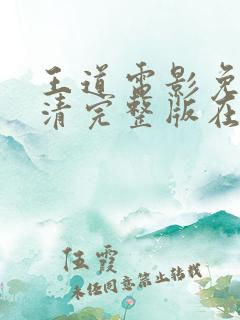 王道电影免
清完整版在
伍霞
未经同意禁止转载